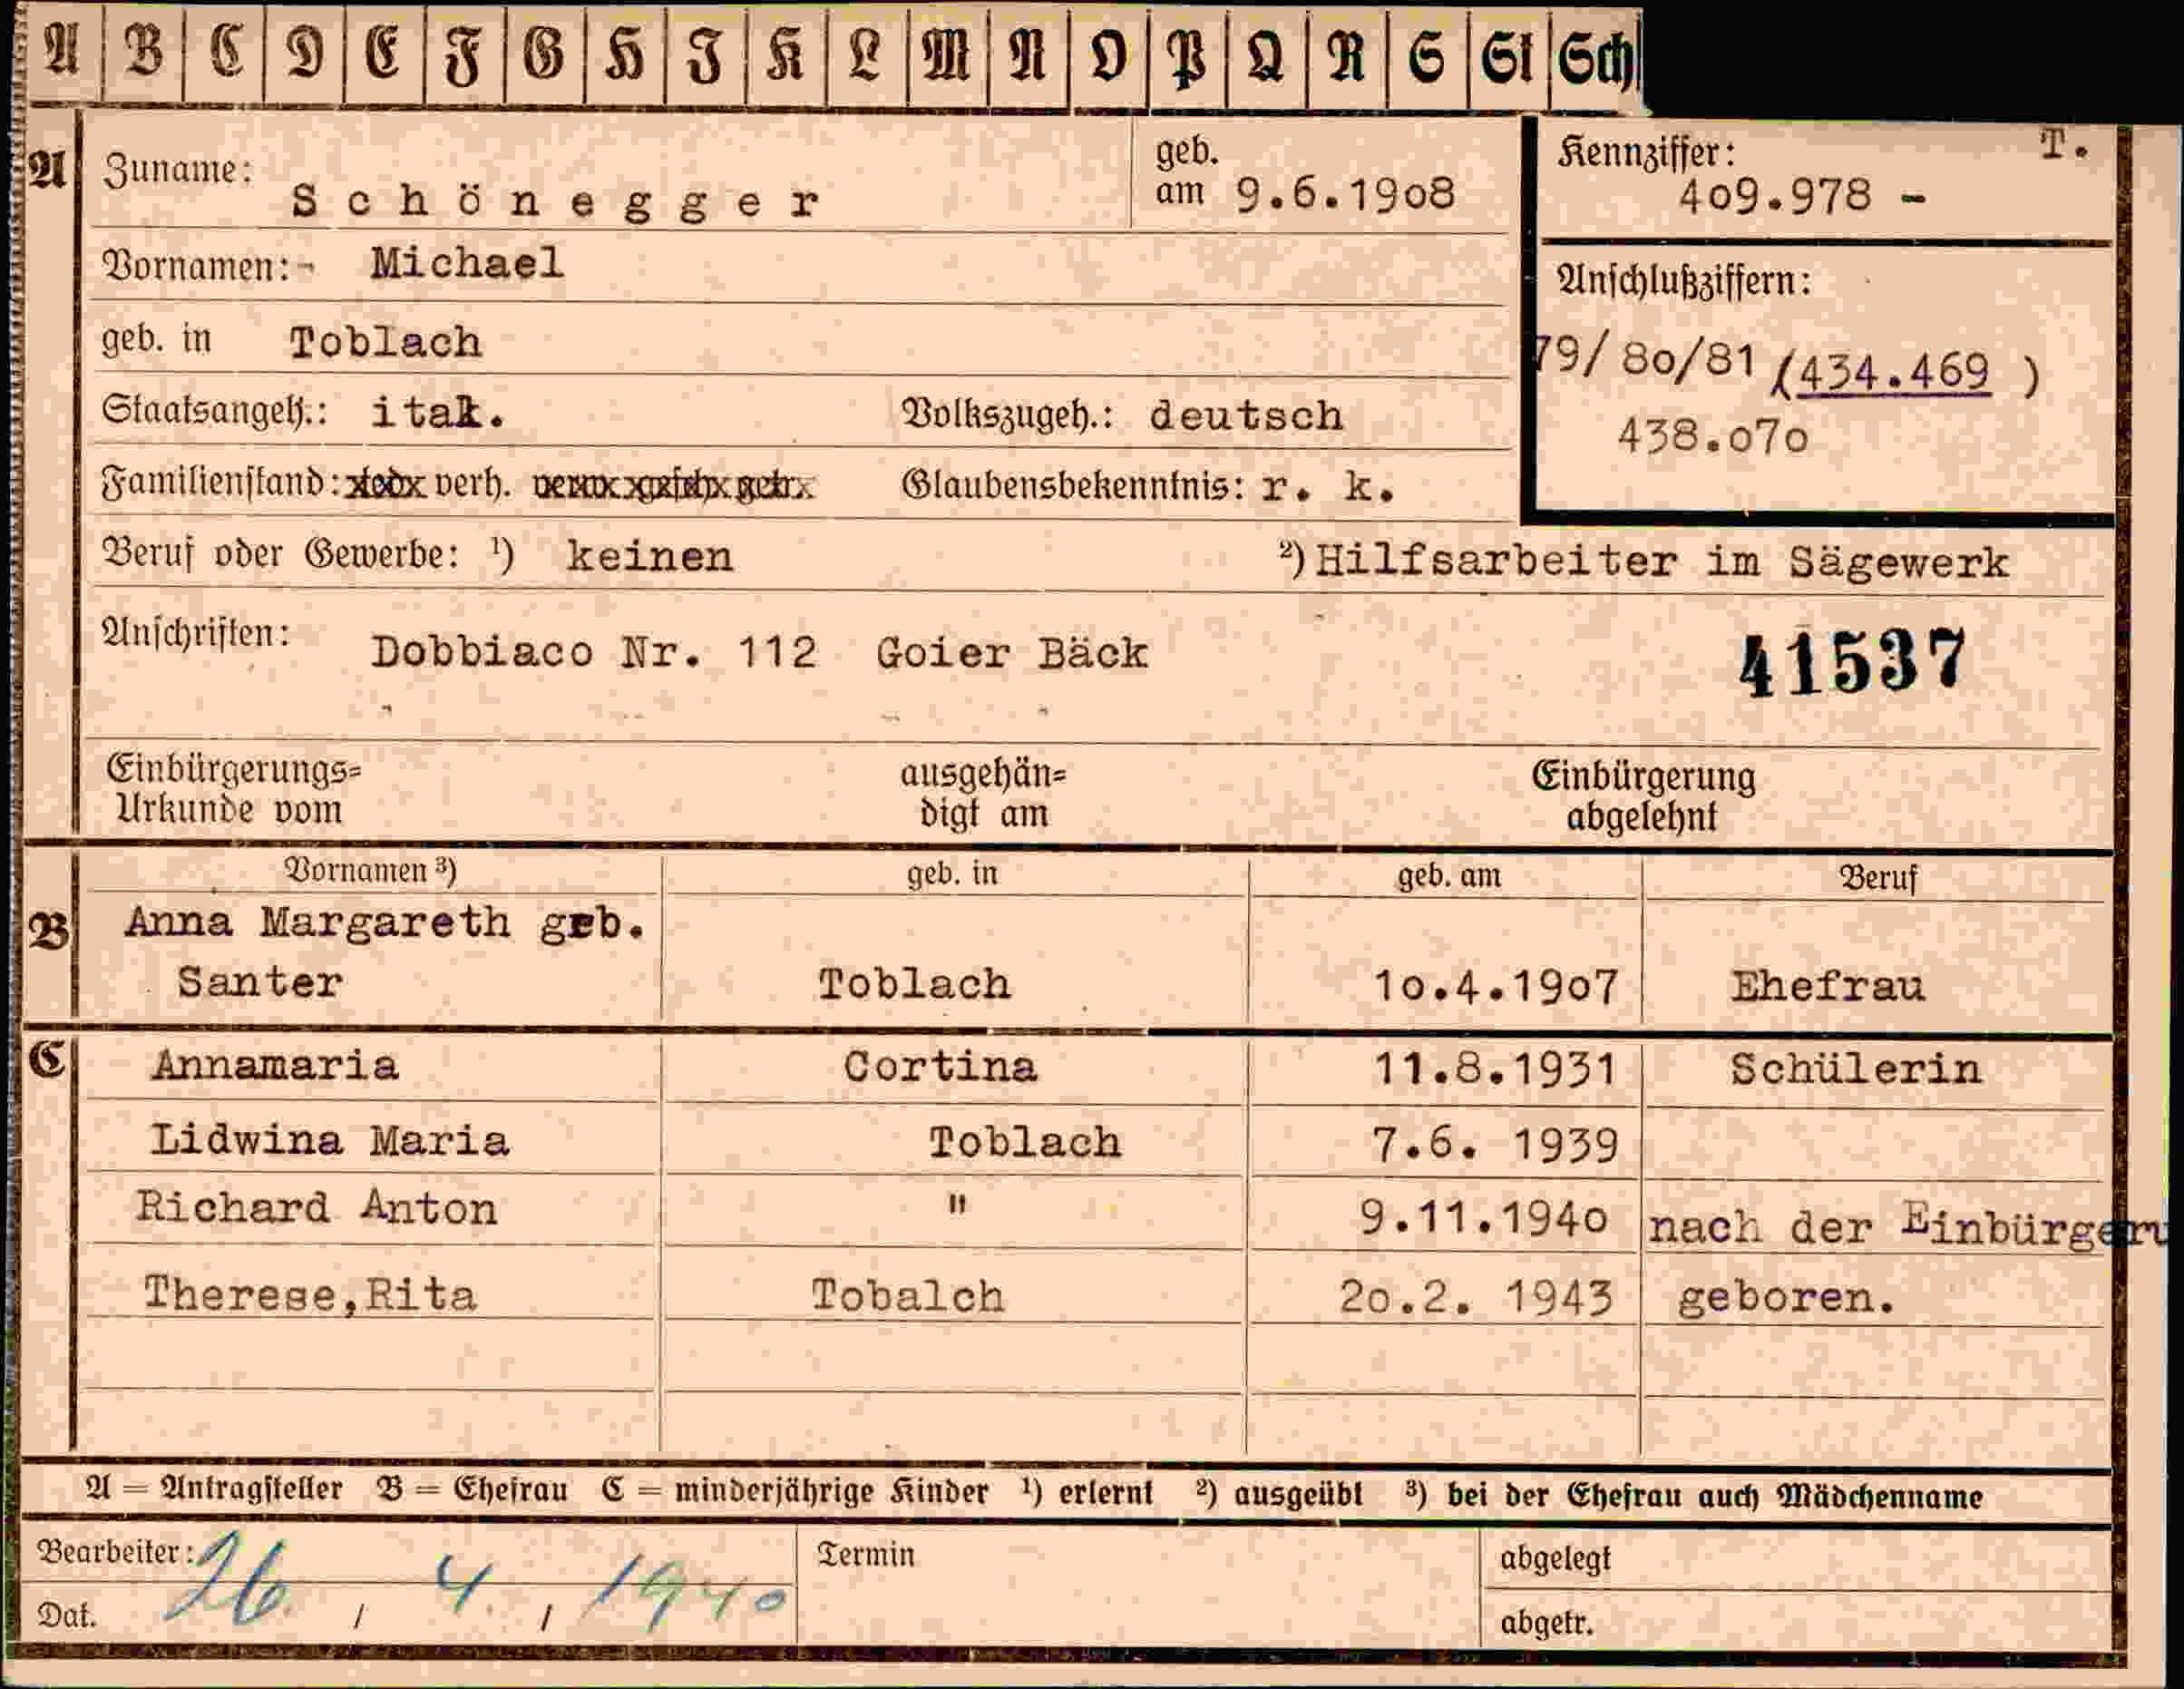 A B C D E F G H I K L M N O P Q R S St Sch
A Zuname: Schönegger geb. am 9.6.1908 Kennziffer: T.
409.978 -
Vornamen: Michael Anschlußziffern:
geb. in Toblach 79/80/81 (434.469 )
Staatsangeh.: ital. Volkszugeh.: deutsch 438.070
Familienstand: verh. Glaubensbekenntnis: r. k.
Beruf oder Gewerbe: ¹) keinen ²) Hilfsarbeiter im Sägewerk
Anschriften: Dobbiaco Nr. 112 Goier Bäck 41537
Einbürgerungs= ausgehän= Einbürgerung
Urkunde vom digt am abgelehnt
Vornamen ³) geb. in geb. am Beruf
B Anna Margareth geb.
Santer Toblach 10.4.1907 Ehefrau
C Annamaria Cortina 11.8.1931 Schülerin
Lidwina Maria Toblach 7.6. 1939
Richard Anton " 9.11.1940 nach der Einbürgeru
Therese,Rita Tobalch 20.2. 1943 geboren.
A = Antragsteller B = Ehefrau C = minderjährige Kinder ¹) erlernt ²) ausgeübt ³) bei der Ehefrau auch Mädchenname
Bearbeiter: Termin abgelegt
Dat. 26 / 4. / 1940 abgetr.